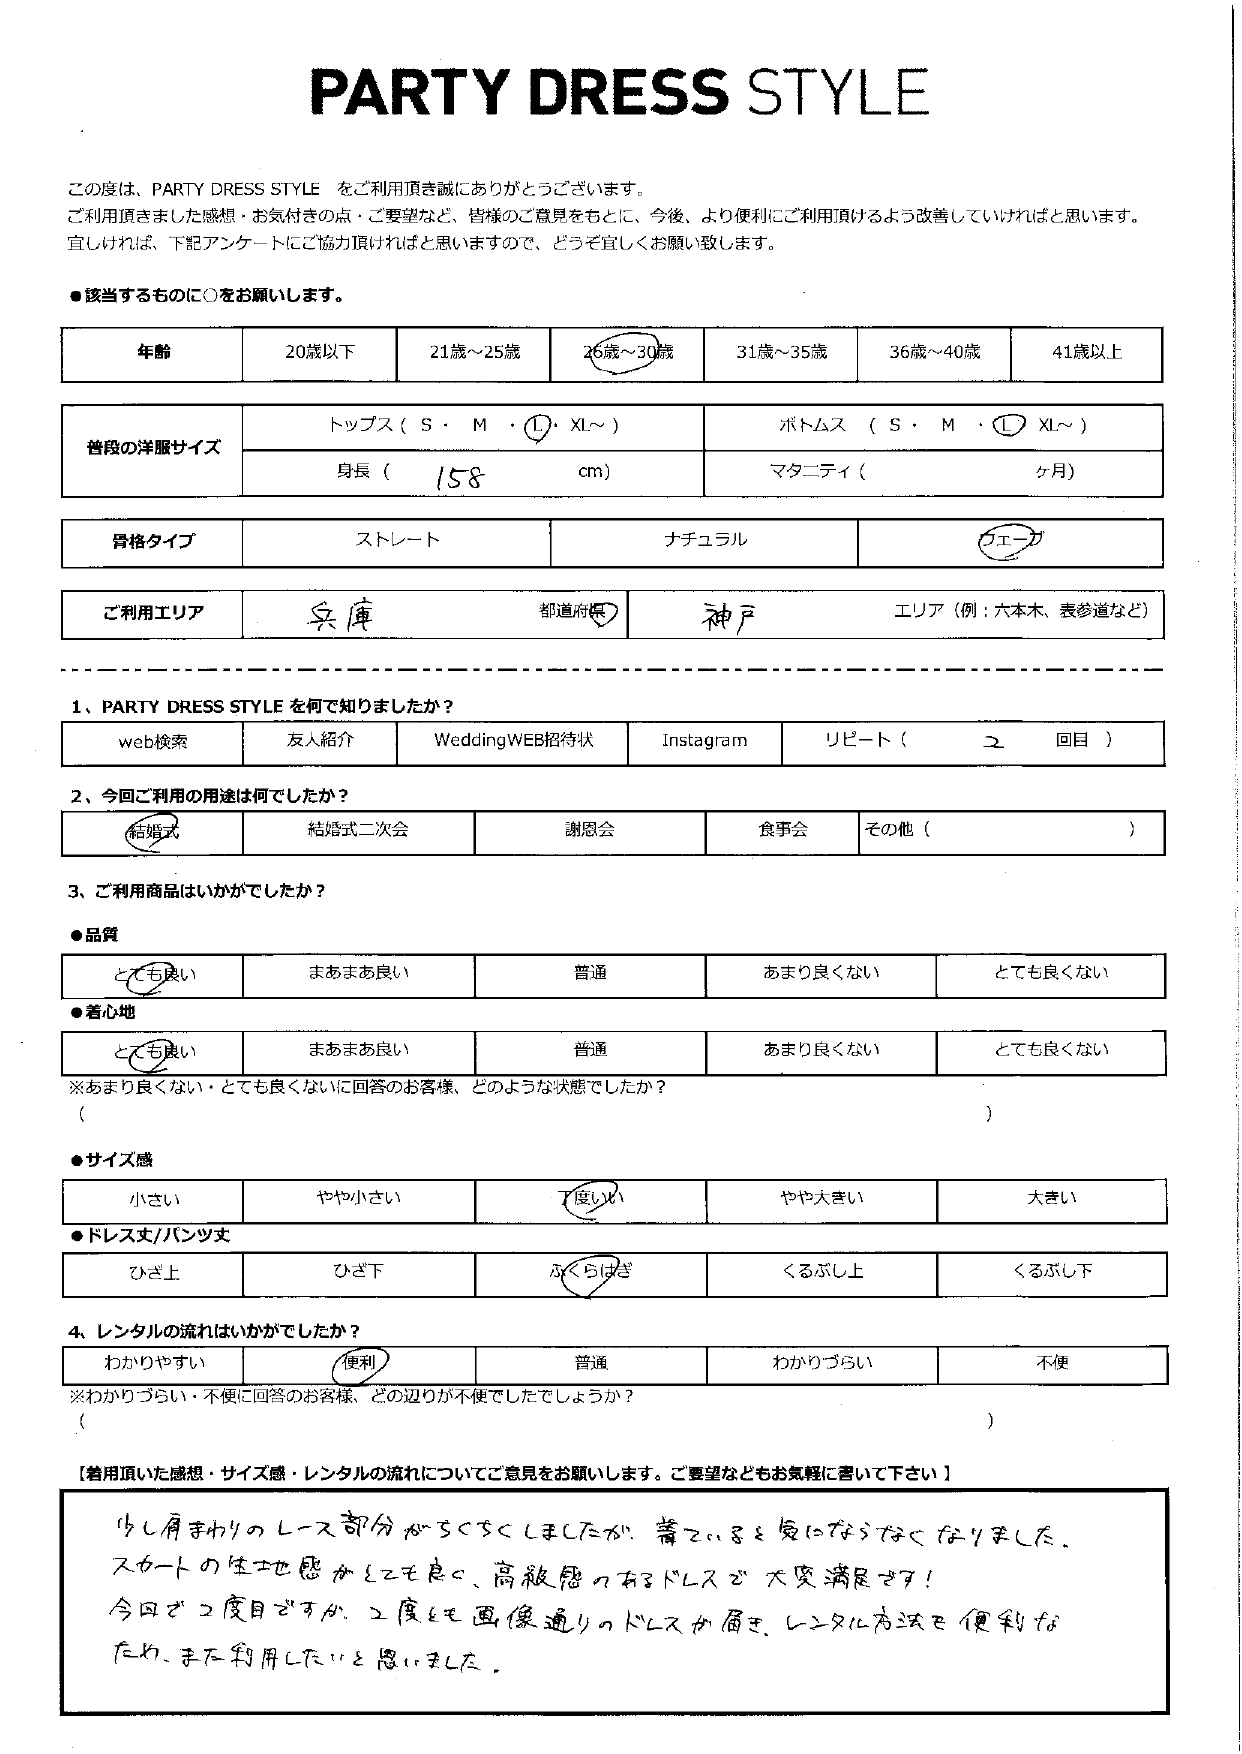 PARTY DRESS STYLE
この度は、PARTY DRESS STYLE をご利用頂き誠にありがとうございます。
ご利用頂きました感想・お気付きの点・ご要望など、皆様のご意見をもとに、今後、より便利にご利用頂けるよう改善していければと思います。
宜しければ、下記アンケートにご協力頂ければと思いますので、どうぞ宜しくお願い致します。
●該当するものに○をお願いします。
年齢 20歳以下 21歳～25歳 26歳～30歳 31歳～35歳 36歳～40歳 41歳以上
普段の洋服サイズ
トップス ( S ・ M ・ L ・ XL～ ) ボトムス ( S ・ M ・ L ・ XL～ )
身長 ( 158 cm) マタニティ ( ヶ月)
骨格タイプ ストレート ナチュラル ウェーブ
ご利用エリア 兵庫 都道府県 神戸 エリア（例：六本木、表参道など）
1、PARTY DRESS STYLE を何で知りましたか？
web検索 友人紹介 WeddingWEB招待状 Instagram リピート（ 2 回目 ）
2、今回ご利用の用途は何でしたか？
結婚式 結婚式二次会 謝恩会 食事会 その他（ ）
3、ご利用商品はいかがでしたか？
●品質
とても良い まあまあ良い 普通 あまり良くない とても良くない
●着心地
とても良い まあまあ良い 普通 あまり良くない とても良くない
※あまり良くない・とても良くないに回答のお客様、どのような状態でしたか？
（ ）
●サイズ感
小さい やや小さい 丁度いい やや大きい 大きい
●ドレス丈/パンツ丈
ひざ上 ひざ下 ふくらはぎ くるぶし上 くるぶし下
4、レンタルの流れはいかがでしたか？
わかりやすい 便利 普通 わかりづらい 不便
※わかりづらい・不便に回答のお客様、どの辺りが不便でしたでしょうか？
（ ）
【着用頂いた感想・サイズ感・レンタルの流れについてご意見をお願いします。ご要望などもお気軽に書いて下さい 】
少し肩まわりのレース部分がちくちくしましたが、着ていると気にならなくなりました。
スカートの生地感がとても良く、高級感のあるドレスで大変満足です！
今回で2度目ですが、2度とも画像通りのドレスが届き、レンタル方法も便利な
ため、また利用したいと思いました。